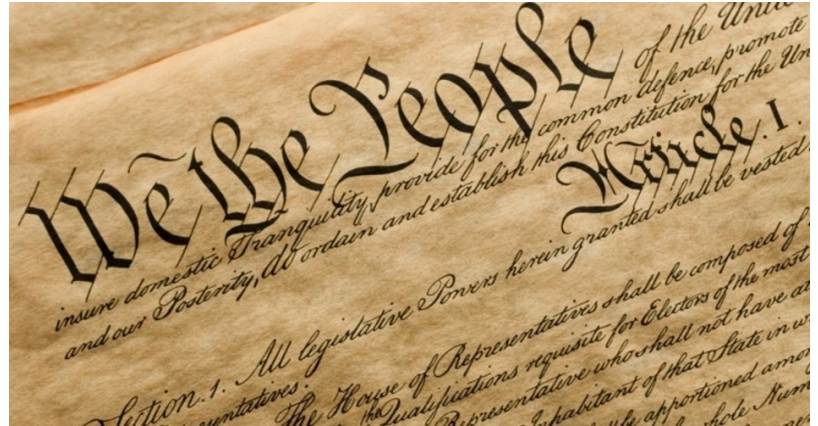 We the People of the Unite
insure domestic Tranquility, provide for the common defence, promote
and our Posterity, do ordain and establish this Constitution for the Un
Article. I.
Section. 1. All legislative Powers herein granted shall be vested
entatives.
The House of Representatives shall be composed of
Qualifications requisite for Electors of the most
Representative who shall not have at
Inhabitant of that State in w
be apportioned amon
whole Num